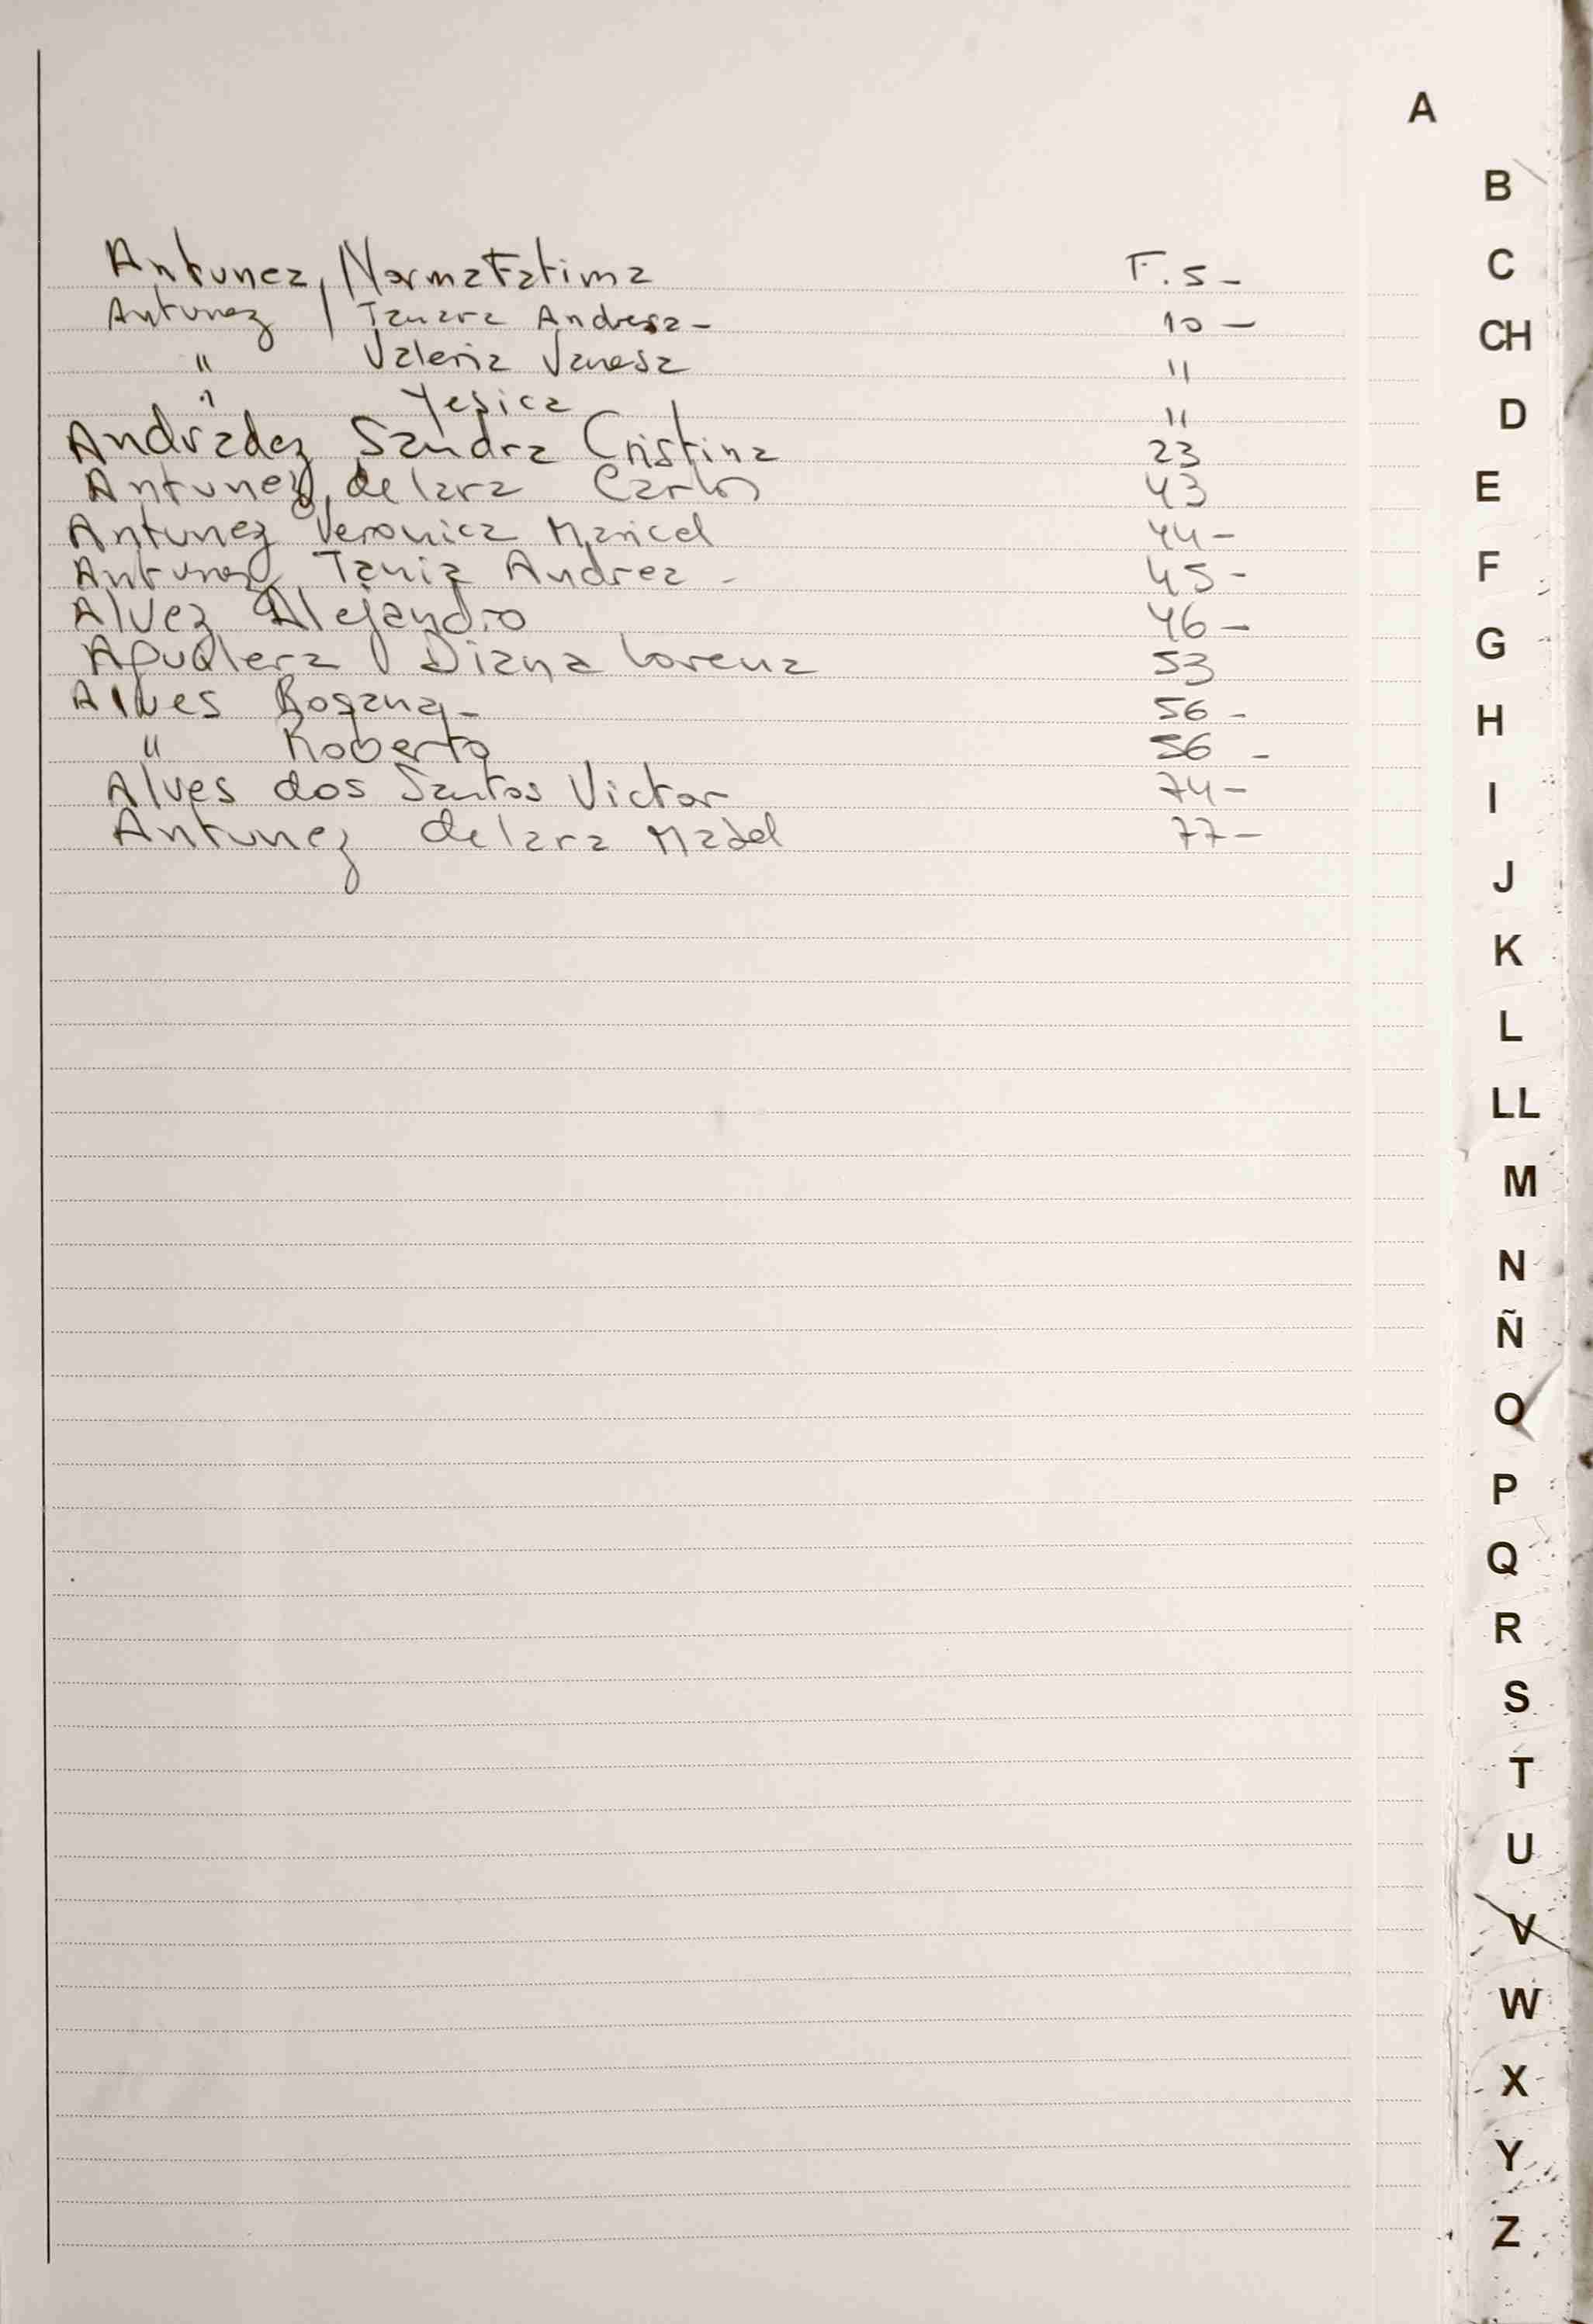 A
B
Antunez, Norma Fatima F. 5 -
C
Antunez Tanara Andresa - 10 -
CH
" Valeria Vanesa 11
" Yesica 11
D
Andradez Sandra Cristina 23
Antunez de lara Carlos 43
E
Antunez Veronica Maricel 44 -
Antunez Tania Andrea - 45 -
F
Alvez Alejandro 46 -
G
Aguilera Diana Lorena 53
Alves Rosana - 56 -
H
" Roberto 56 -
Alves dos Santos Victor 74 -
I
Antunez de lara Madel 77 -
J
K
L
LL
M
N
Ñ
O
P
Q
R
S
T
U
V
W
X
Y
Z